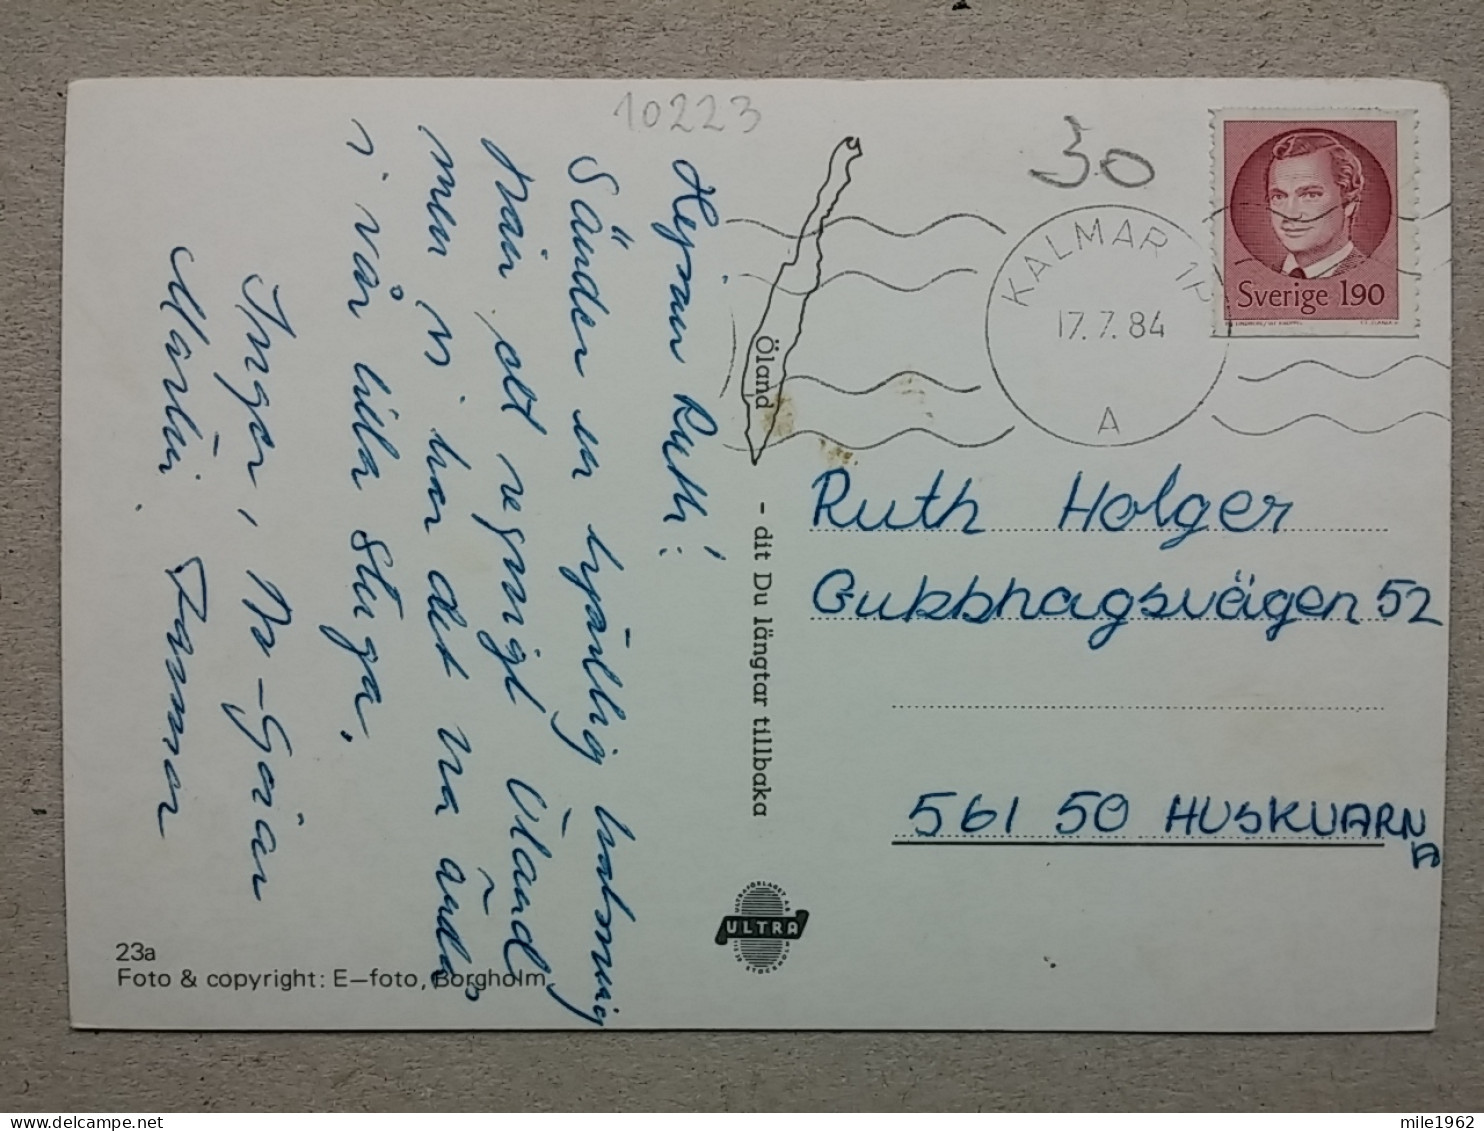 10223
30
Hejsan Ruth!
Sänder en hjärtlig hälsning
från ett regnigt Öland
men vi har det bra ändå
i vår lilla stuga.
Inger, Göran
Malin Gunnar
Öland - dit Du längtar tillbaka
KALMAR 1
17.7.84
A
Sverige 190
Ruth Holger
Gubbhagsvägen 52
561 50 HUSKVARNA
ULTRA
23a
Foto & copyright: E–foto, Borgholm
mile1962